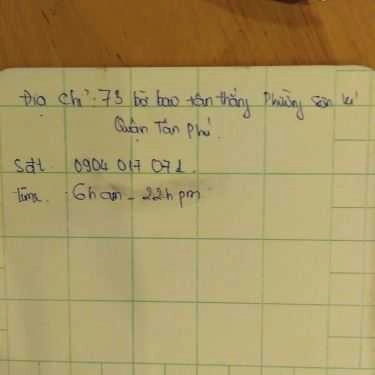 Địa chỉ: 73 bờ bao tân thắng Phường Sơn kì
Quận Tân phú.
Sđt: 0904 017 071
Time: 6h am - 22h pm